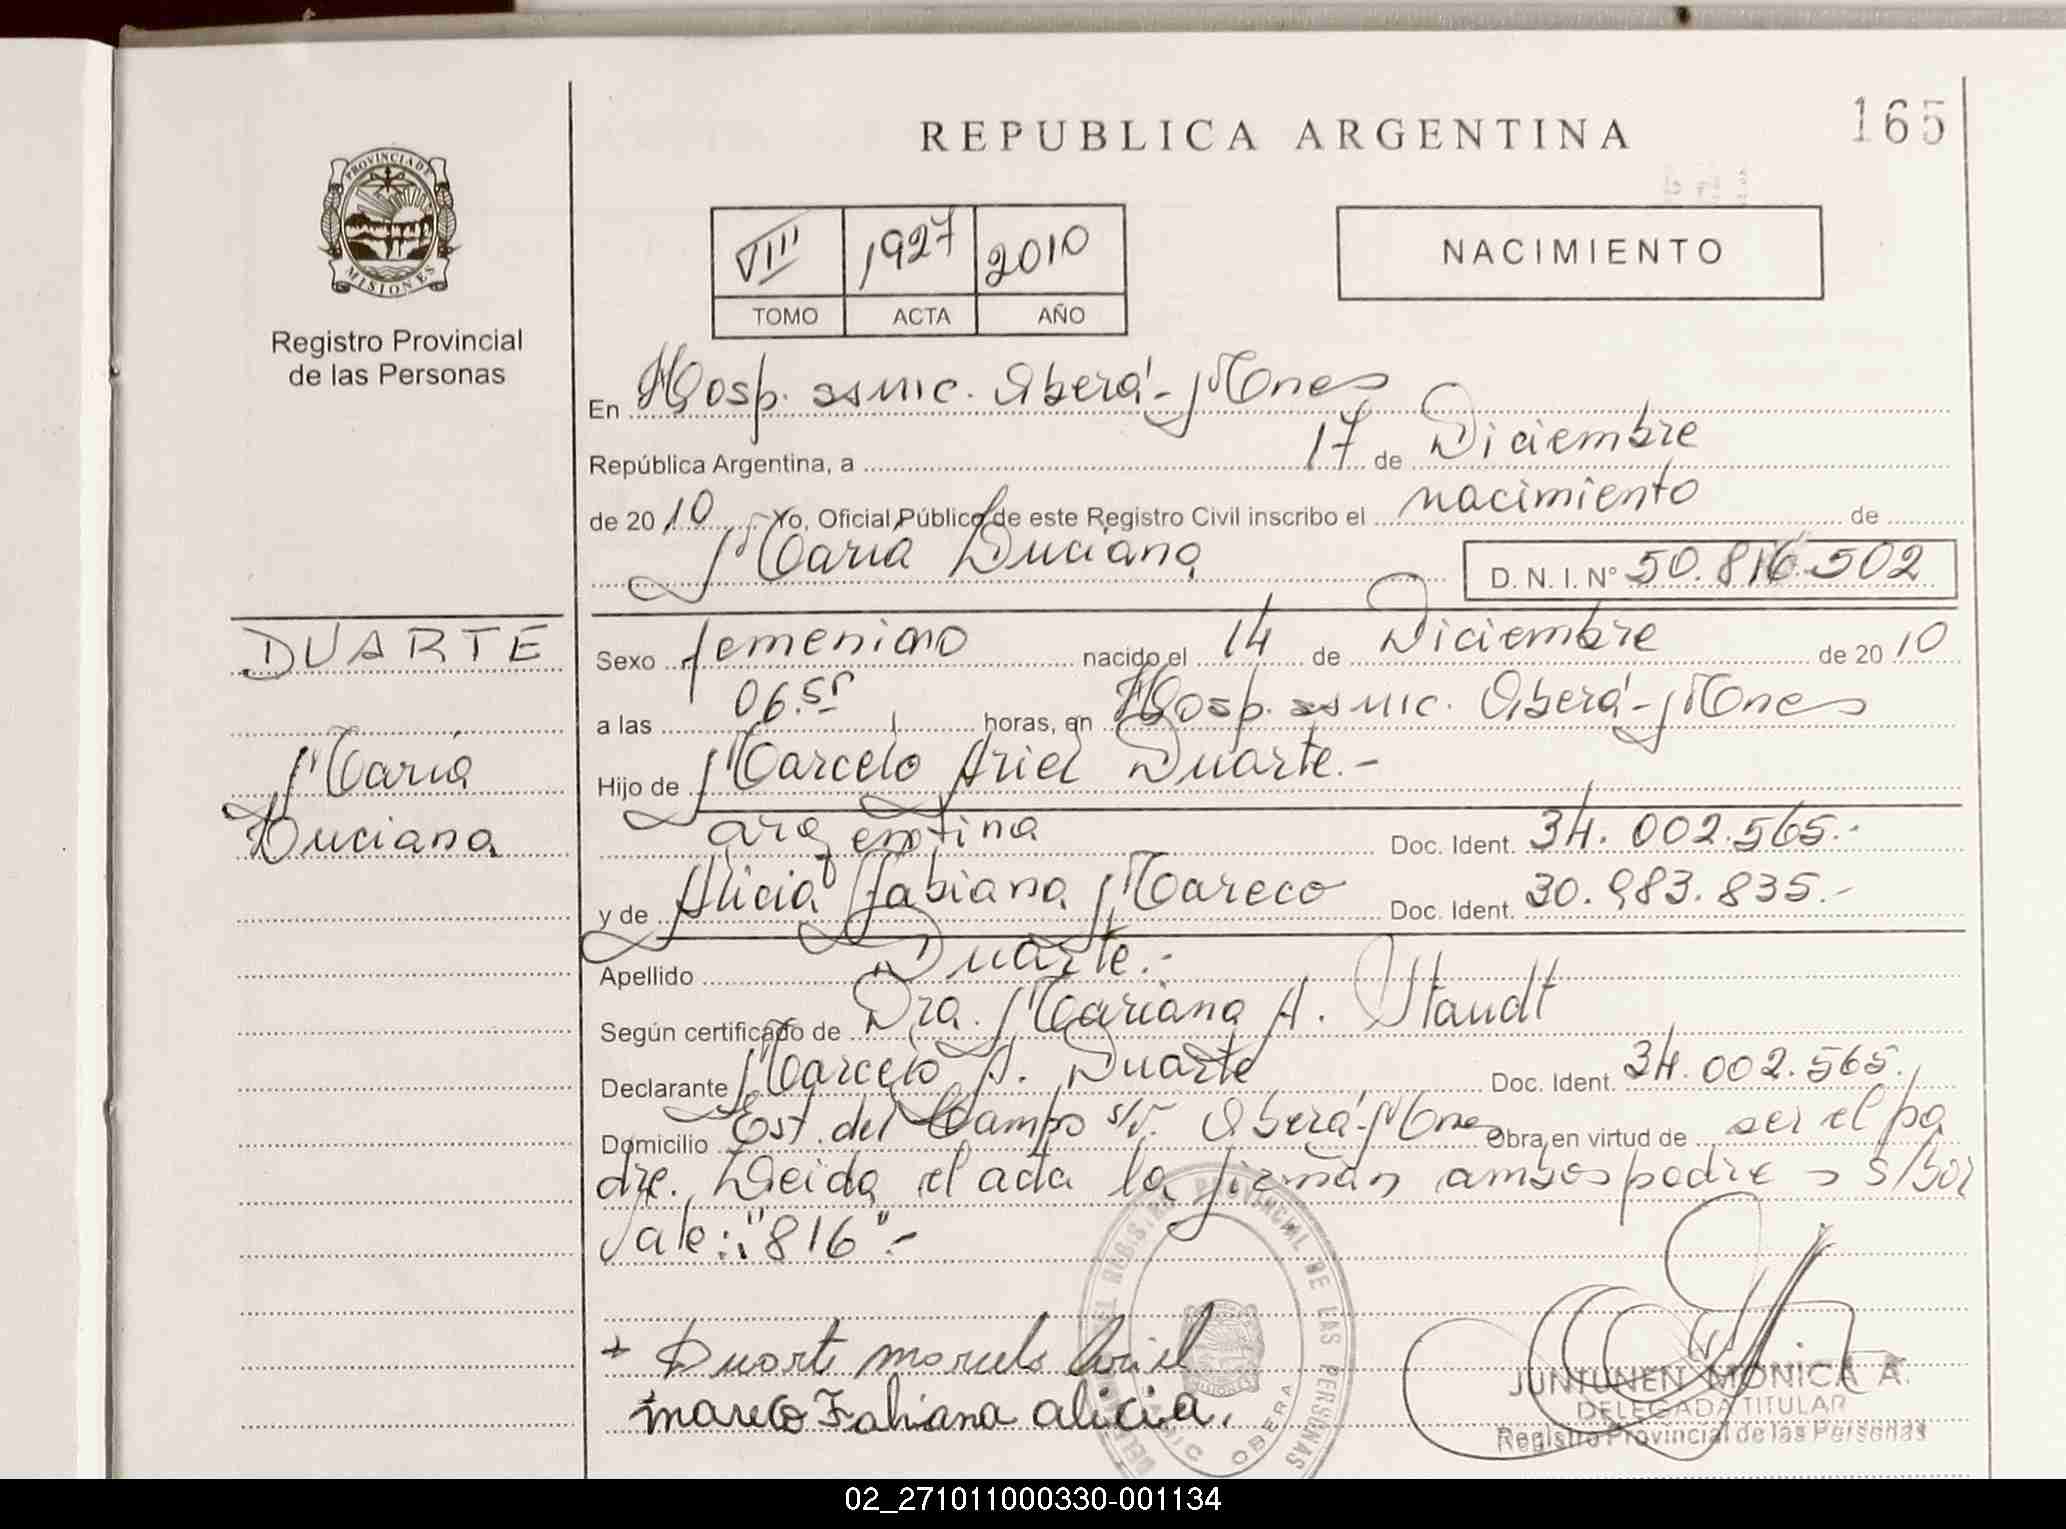 165
REPUBLICA ARGENTINA
PROVINCIA DE
MISIONES
Registro Provincial
de las Personas
VIII 1927 2010
TOMO ACTA AÑO
NACIMIENTO
En Hosp. ssmic. Oberá - Mnes
República Argentina, a 17 de Diciembre
de 2010 Yo, Oficial Público de este Registro Civil inscribo el nacimiento de
María Luciana D. N. I. N° 50.816.502
DUARTE
María
Luciana
Sexo femenino nacido el 14 de Diciembre de 2010
a las 06.55 horas, en Hosp. ssmic. Oberá - Mnes
Hijo de Marcelo Ariel Duarte.-
argentina Doc. Ident. 34.002.565.-
y de Alicia Fabiana Mareco Doc. Ident. 30.983.835.-
Apellido Duarte.-
Según certificado de Dra. Mariana A. Staudt
Declarante Marcelo A. Duarte Doc. Ident. 34.002.565.
Domicilio Est. del Campo s/n. Oberá - Mnes Obra en virtud de ser el pa
dre. Leida el acta la firman ambos padres s/bor
Vale: "816".-
Duarte Marcelo Ariel
mareco Fabiana alicia.
REGISTRO PROVINCIAL DE LAS PERSONAS
OBERA
JUNTUNEN MONICA A.
DELEGADA TITULAR
Registro Provincial de las Personas
02_271011000330-001134